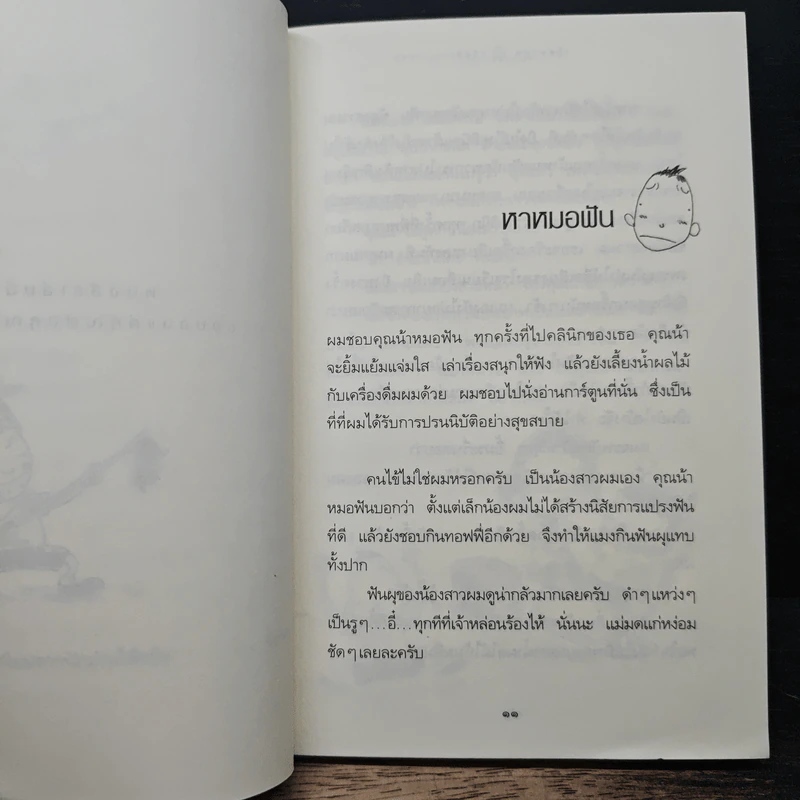 หาหมอฟัน
ผมชอบคุณน้าหมอฟัน ทุกครั้งที่ไปคลินิกของเธอ คุณน้า
จะยิ้มแย้มแจ่มใส เล่าเรื่องสนุกให้ฟัง แล้วยังเลี้ยงน้ำผลไม้
กับเครื่องดื่มผมด้วย ผมชอบไปนั่งอ่านการ์ตูนที่นั่น ซึ่งเป็น
ที่ที่ผมได้รับการปรนนิบัติอย่างสุขสบาย
คนไข้ไม่ใช่ผมหรอกครับ เป็นน้องสาวผมเอง คุณน้า
หมอฟันบอกว่า ตั้งแต่เล็กน้องผมไม่ได้สร้างนิสัยการแปรงฟัน
ที่ดี แล้วยังชอบกินทอฟฟี่อีกด้วย จึงทำให้แมงกินฟันผุแทบ
ทั้งปาก
ฟันผุของน้องสาวผมดูน่ากลัวมากเลยครับ ดำๆแหว่งๆ
เป็นรูๆ...อี๋...ทุกทีที่เจ้าหล่อนร้องไห้ นั่นนะ แม่มดแก่หง่อม
ชัดๆเลยละครับ
๑๑